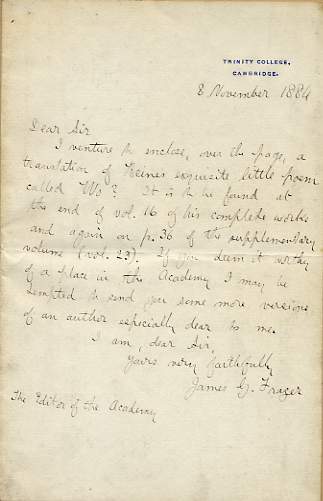 TRINITY COLLEGE,
CAMBRIDGE.
8 November 1884
Dear Sir
I venture to enclose, over the page, a
translation of Heine's exquisite little poem
called Wo? It is to be found at
the end of vol. 16 of his complete works
and again on p. 36 of the supplementary
volume (vol. 23). If you deem it worthy
of a place in the Academy I may be
tempted to send you some more versions
of an author especially dear to me.
I am, dear Sir,
Yours very faithfully
James G. Frazer
The Editor of the Academy